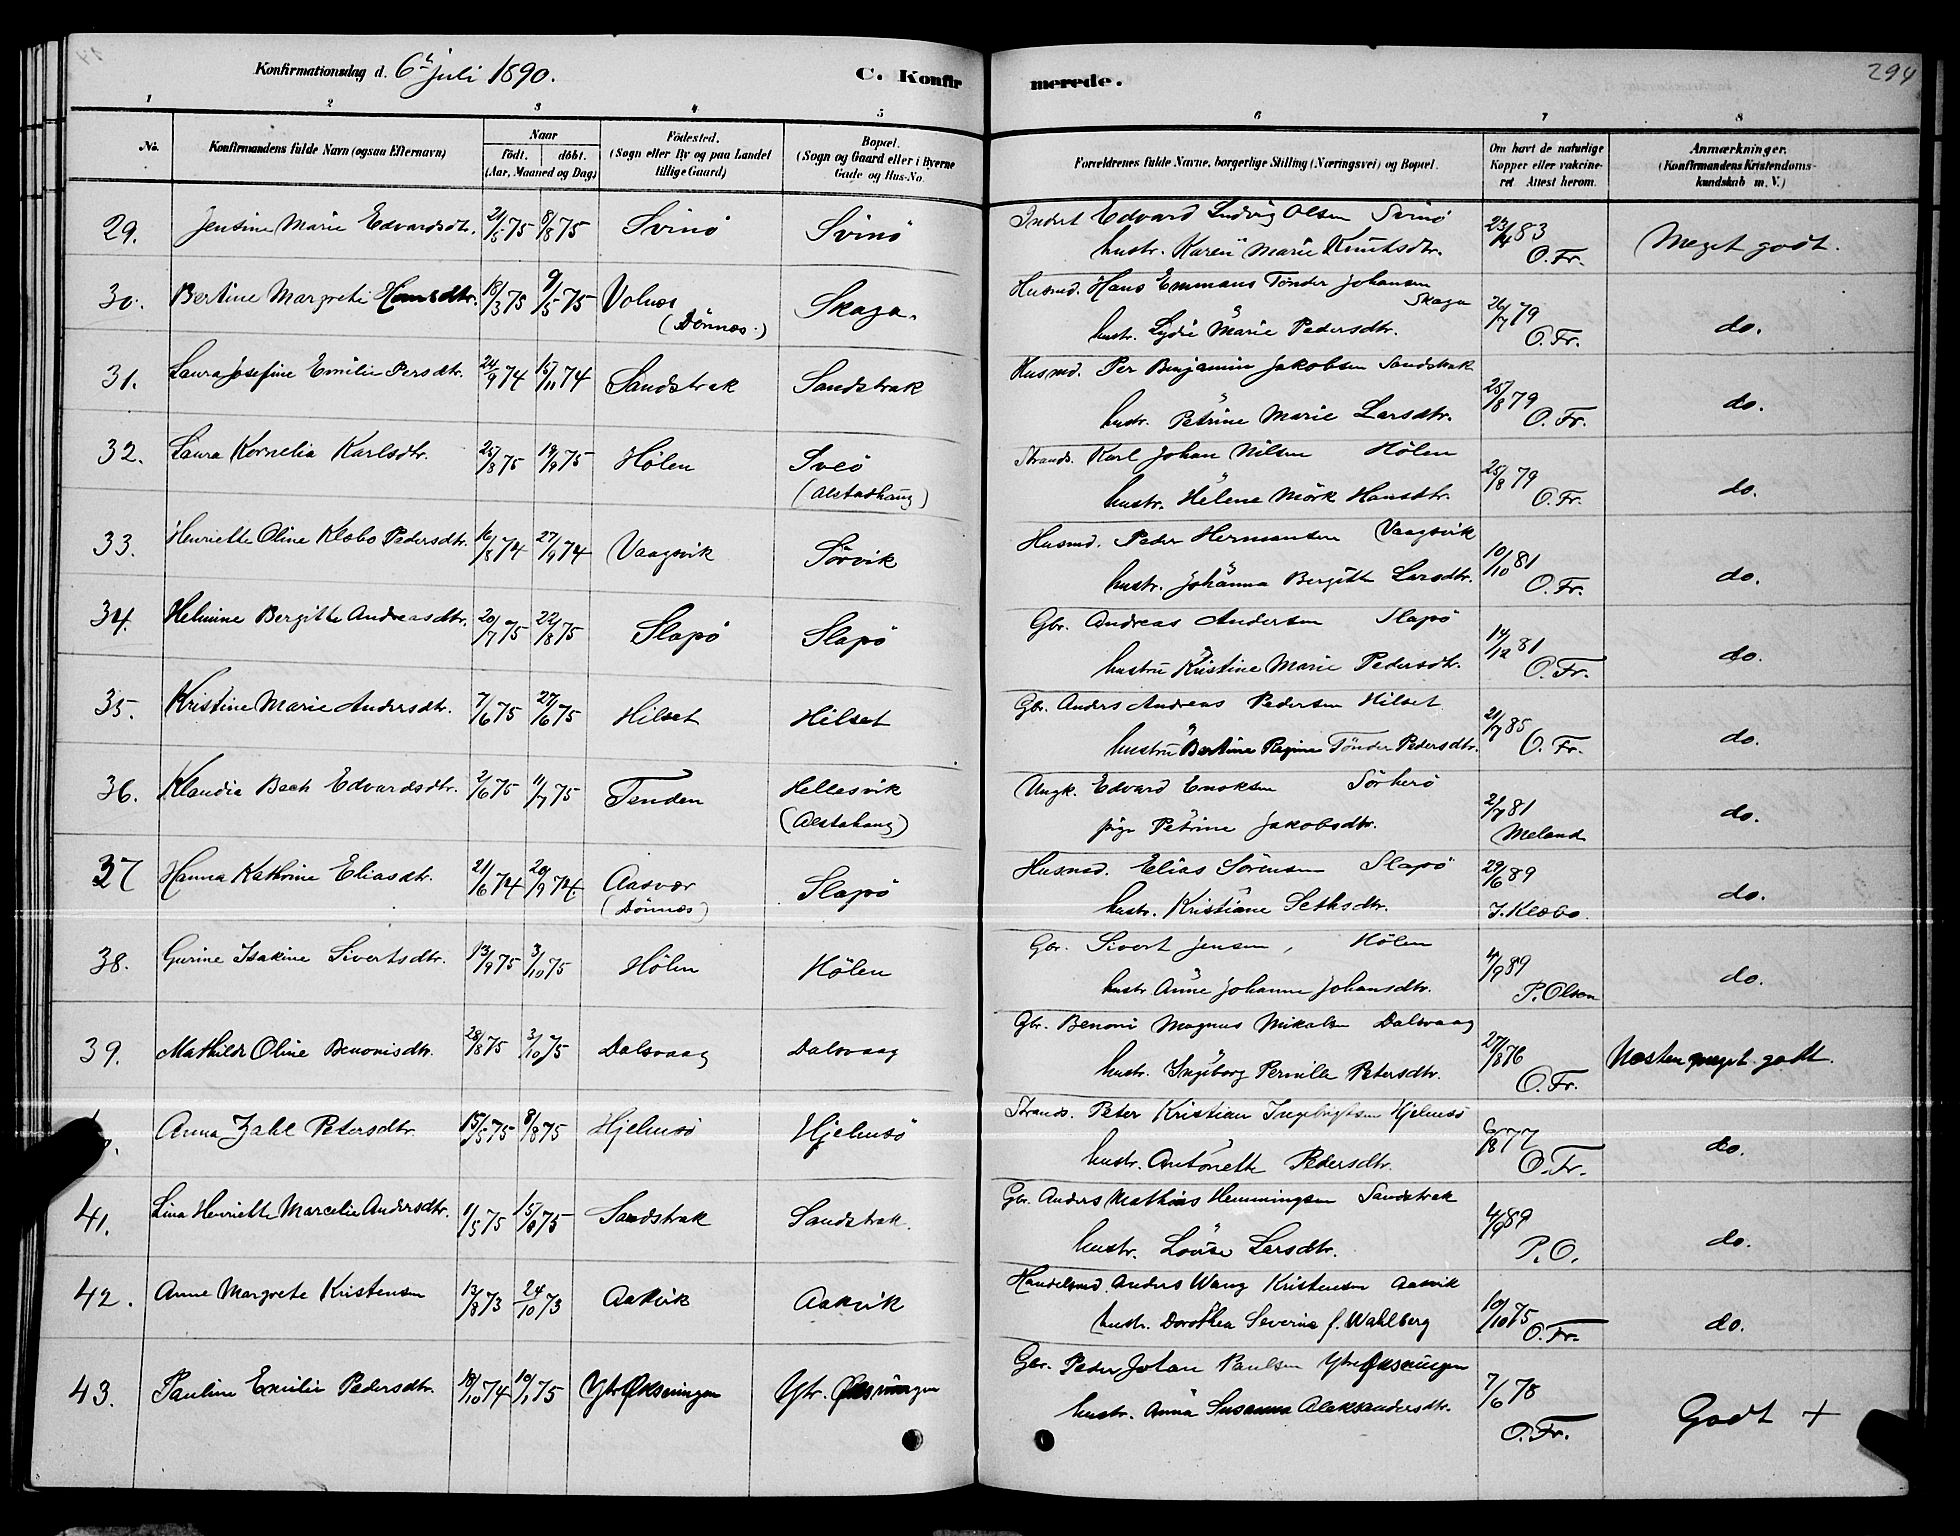 Konfirmationsdag d. 6te juli 1890. C. Konfirmerede. 294
1 2 3 4 5 6 7 8
No. Konfirmandens fulde Navn (ogsaa Efternavn) Naar födt. döbt. (Aar, Maaned og Dag) Födested. (Sogn eller By og paa Landet tillige Gaard) Bopæl. (Sogn og Gaard eller i Byerne Gade og Hus-No. Forældrenes fulde Navne, borgerlige Stilling (Næringsvei) og Bopæl. Om havt de naturlige Kopper eller vakcineret Attest herom. Anmærkninger. (Konfirmandens Kristendomskundskab m. V.)
29. Jentine Marie Edvardsdtr. 21/5 75 8/8 75 Svinö Svinö Inderst Edvard Ludvig Olsen Svinö 23/4 83
hustr. Karen Marie Knutsdtr. O. Fr. Meget godt.
30. Bertine Margrete Hansdtr. 18/3 75 9/5 75 Volnes (Dönnes.) Skaga. Husmd. Hans Emmans Tönder Johansen Skaga 26/7 79
hustr. Lydie Marie Pedersdtr. O. Fr. do.
31. Laura Josefine Emilie Persdtr. 24/9 74 15/11 74 Sandstrak Sandstrak Husmd. Per Benjamin Jakobsen Sandstrak 25/8 79
hustr. Petrine Marie Larsdtr. O. Fr. do.
32. Laura Kornelia Karlsdtr. 25/8 75 19/9 75 Hölen Sveö (Alstadhaug) Strands. Karl Johan Nilsen Hölen 25/8 79
hustr. Helene Mörk Hansdtr. O. Fr. do.
33. Henriette Oline Klæbo Pedersdtr. 16/8 74 27/9 74 Vaagsvik Sörvik Husmd. Peder Hermansen Vaagsvik 10/10 81
hustr. Johanna Bergitte Larsdtr. O. Fr. do.
34. Helmine Bergitte Andreasdtr. 20/7 75 22/8 75 Slapö Slapö Gbr. Andreas Andersen Slapö 14/12 81
hustru Kristine Marie Pedersdtr. O. Fr. do.
35. Kristine Marie Andersdtr. 7/6 75 27/6 75 Hilset Hilset Gbr. Anders Andreas Pedersen Hilset 21/7 85
hustru Bertine Regine Tönder Pedersdtr. O. Fr. do.
36. Klaudia Bech Edvardsdtr. 2/6 75 11/7 75 Tenden Hellesvik (Alstahaug) Ungk. Edvard Enoksen Sörherö 2/7 81
pige Petrine Jakobsdtr. Meland do.
37 Hanna Kathrine Eliasdtr. 21/6 74 20/9 74. Aasvær (Dönnes) Slapö Husmd. Elias Sörensen Slapö 29/6 89
hustr. Kristiane Sethsdtr. J. Klæbo. do.
38. Gurine Isakine Sivertsdtr. 13/9 75 3/10 75 Hölen Hölen Gbr. Sivert Jensen, Hölen 4/9 89
hustr. Anne Johanne Johansdtr. P. Olsen do.
39. Mathilde Oline Benonisdtr. 28/8 75 3/10 75 Dalsvaag Dalsvaag Gbr. Benoni Magnus Mikalsen Dalsvaag 27/8 76
hustr. Ingeborg Pernille Petersdtr. O. Fr. Næsten meget godt.
Anna Zahl Petersdtr. 15/5 75 8/8 75 Hjelmsö Hjelmsö Strands. Peter Kristian Ingebrigtsen Hjelmsö 6/8 77
hustr. Antonette Pedersdtr. O. Fr. do.
41. Lina Henriette Marcelie Andersdtr. 11/5 75 15/8 75 Sandstrak Sandstrak. Gbr. Anders Mathias Hemmingsen Sandstrak 4/7 89
hustr. Lovise Larsdtr. P. O. do.
42. Anne Margrete Kristensen 13/8 73 24/10 73 Aakvik Aakvik Handelsmd. Anders Wang Kristensen Aakvik 10/10 75
hustr. Dorothea Severine f. Wahlberg O. Fr. do.
43. Pauline Emilie Pedersdtr. 18/10 74 10/1 75 Ytr Øksningen Ytr. Øksningen Gbr. Peder Johan Paulsen Ytre Øksningen 7/6 78
hustr. Anna Susanna Aleksandersdtr. O. Fr. Godt +